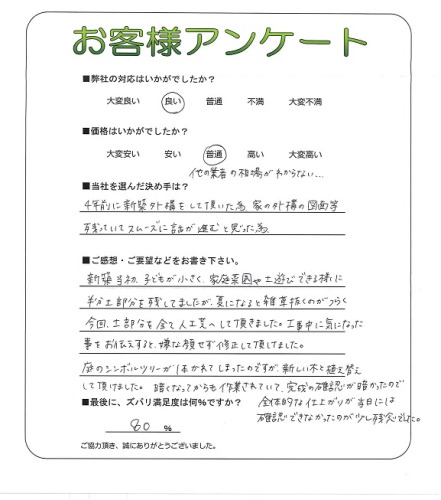 お客様アンケート
■弊社の対応はいかがでしたか？
大変良い 良い 普通 不満 大変不満
■価格はいかがでしたか？
大変安い 安い 普通 高い 大変高い
他の業者の相場がわからない...
■当社を選んだ決め手は？
4年前に新築外構をして頂いた為、家の外構の図面等
残っていてスムーズに話が進むと思った為。
■ご感想・ご要望などをお書き下さい。
新築当初、子どもが小さく、家庭菜園や土遊びできる様に
半分土部分を残してましたが、夏になると雑草抜くのがつらく
今回、土部分を全て人工芝へして頂きました。工事中に気になった
事をお伝えすると、嫌な顔せず修正して頂けました。
庭のシンボルツリーがはかれてしまったのですが、新しい木と植え替え
して頂けました。暗くなってからも作業されていて、完成の確認が暗かったので
全体的な仕上がりが当日には
確認できなかったのが少し残念でした。
■最後に、ズバリ満足度は何%ですか？
80 %
ご協力頂き、誠にありがとうございました。